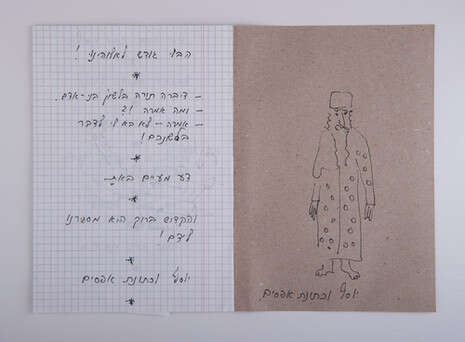 הבו גודש לאלוהינו!
*
– דיברה תורה בלשון בני-אדם.
– ומה אמרה ?!
– אמרה – לא בא לי לדבר
בלשונכם!
*
דע מעיים באת
*
והקדוש ברוך הוא מסטרנו
לידם!
*
יוסף וכתונת אפסים
*
יוסף וכתונת אפסים